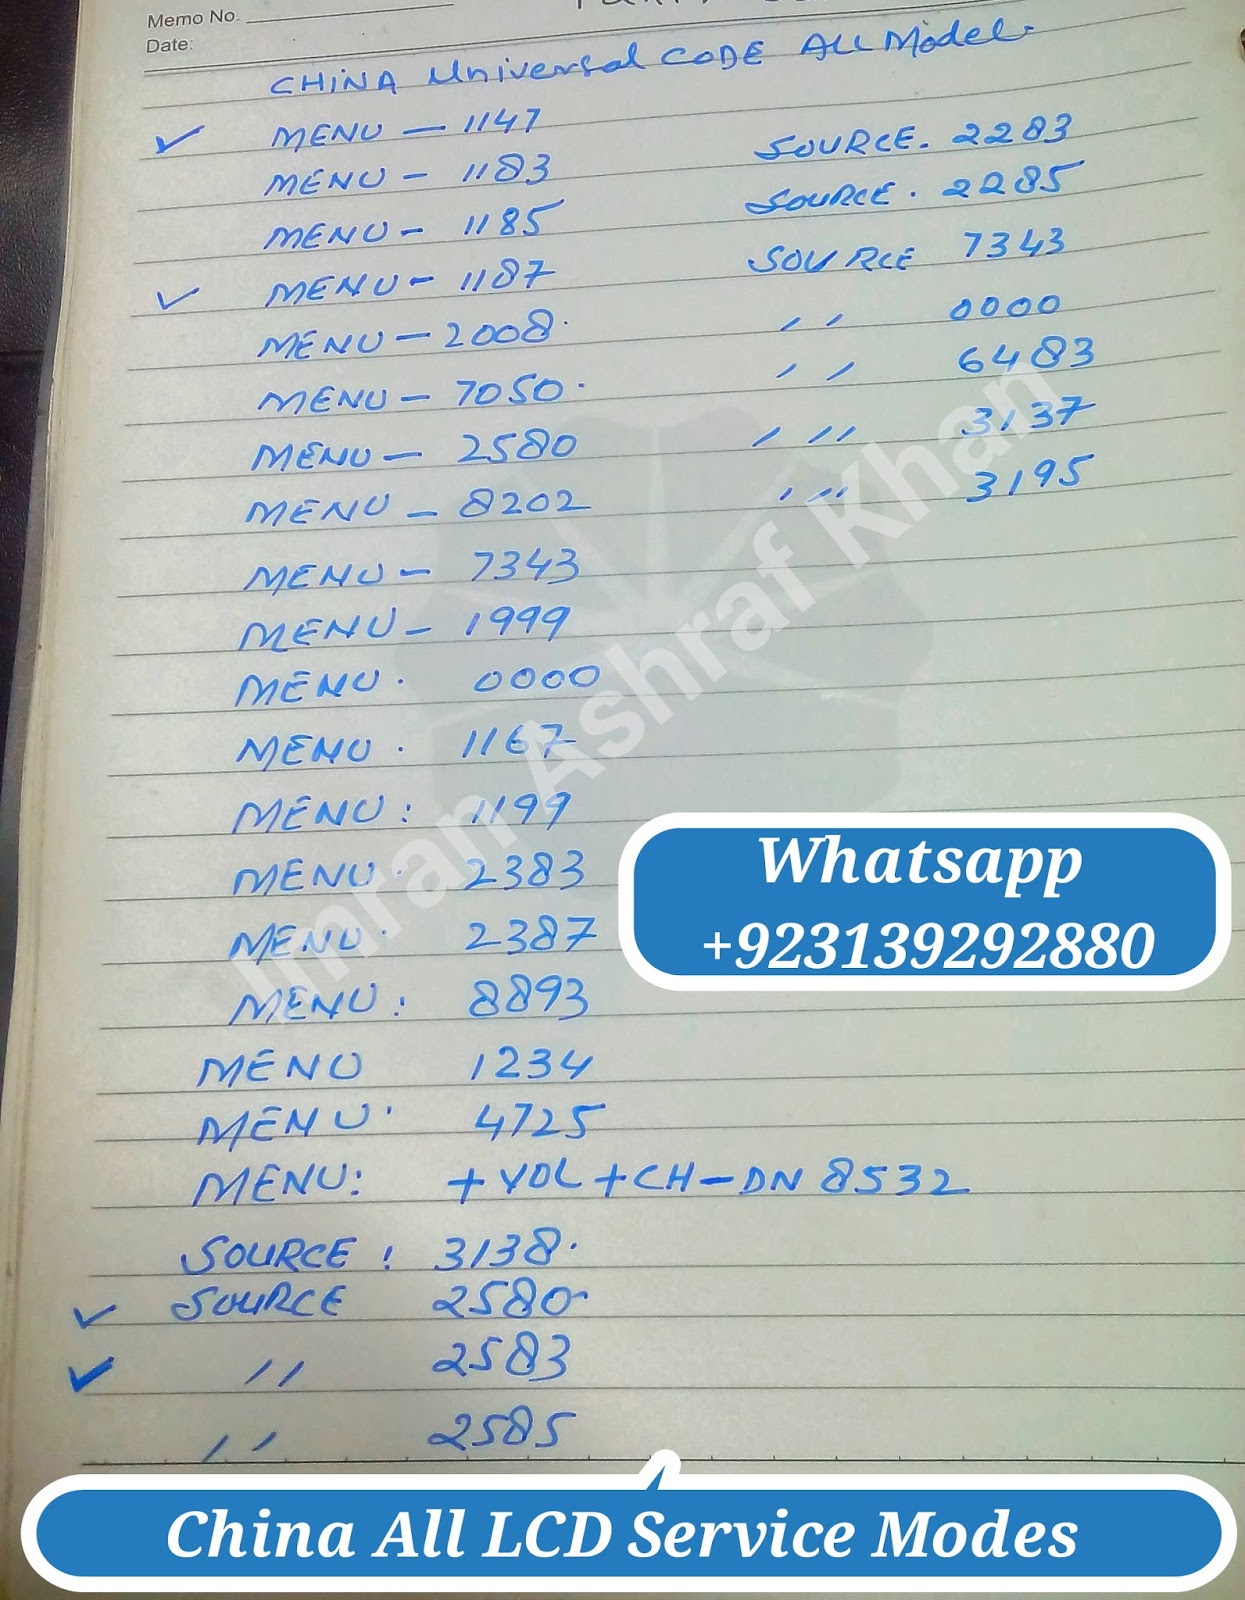 Memo No.
Date:
CHINA Universal CODE All Model.
✓ MENU — 1147
MENU - 1183
MENU - 1185
✓ MENU - 1187
MENU — 2008.
MENU — 7050.
MENU — 2580
MENU - 8202
MENU - 7343
MENU - 1999
MENU. 0000
MENU. 1167
MENU: 1199
MENU. 2383
MENU. 2387
MENU: 8893
MENU 1234
MENU. 4725
MENU: + VOL + CH - DN 8532
SOURCE: 3138.
✓ SOURCE 2580.
✓ " 2583
" 2585
SOURCE. 2283
SOURCE. 2285
SOURCE 7343
" 0000
" 6483
" 3137
" 3195
Imran Ashraf Khan
Whatsapp
+923139292880
China All LCD Service Modes